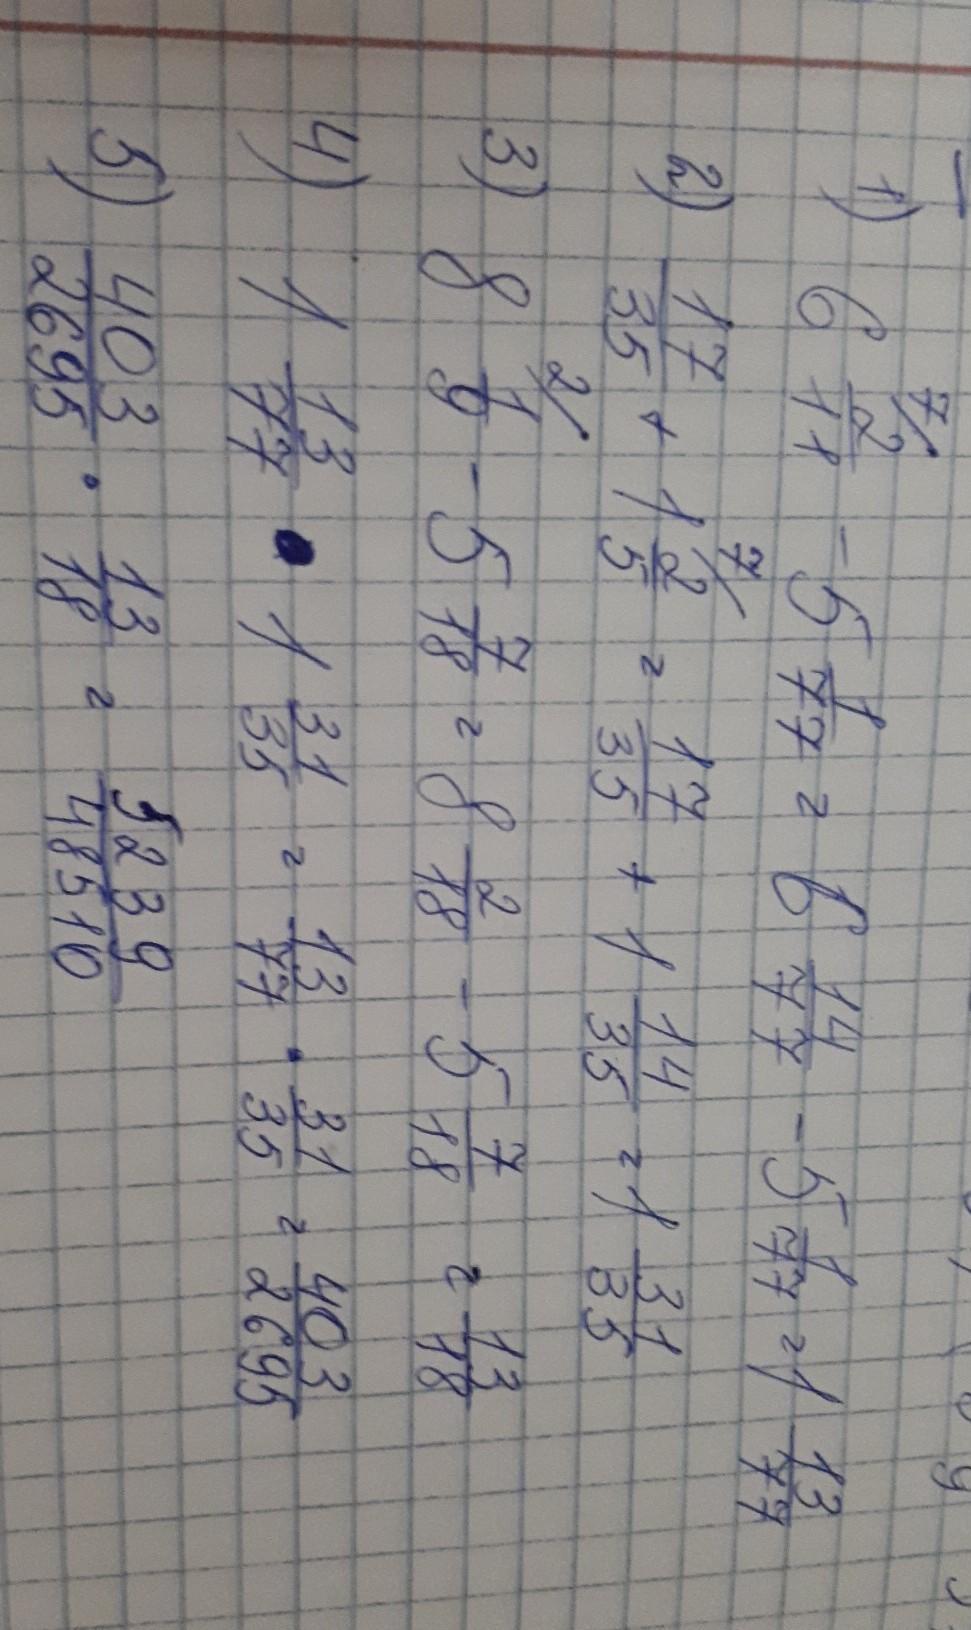 1) 6 2/11 - 5 1/77 = 6 14/77 - 5 1/77 = 1 13/77
2) 17/35 + 1 2/5 = 17/35 + 1 14/35 = 1 31/35
3) 8 1/9 - 5 7/18 = 8 2/18 - 5 7/18 = 13/18
4) 1 13/77 · 1 31/35 = 13/77 · 31/35 = 403/2695
5) 403/2695 · 13/18 = 5239/48510